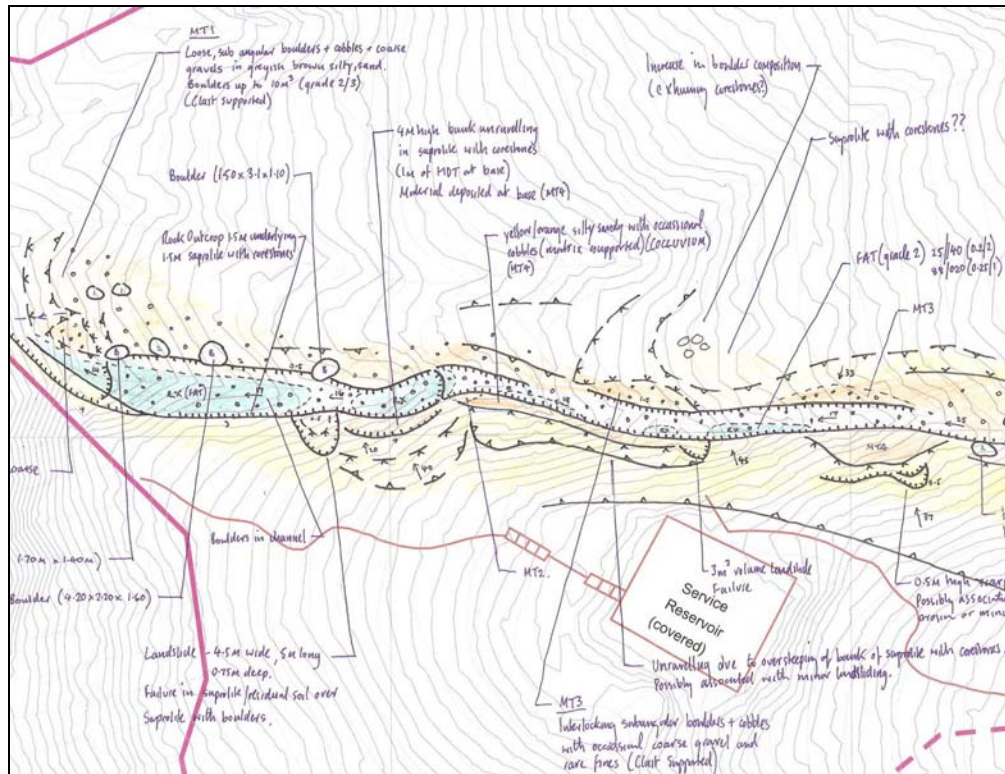 MT1
Loose, sub angular boulders + cobbles + coarse
gravels in greyish brown silty, sand.
Boulders up to 10m³ (grade 2/3)
(Clast supported)
Increase in boulder composition
(exhuming corestones?)
4M high bank unravelling
in saprolite with corestones
(1m of HDT at base)
Material deposited at base (MT4)
Saprolite with corestones??
Boulder (1.50 x 3.1 x 1.10)
Rock Outcrop 1.5M underlying
1.5M saprolite with corestones
yellow/orange silty sandy with occassional
cobbles (matrix supported) (COLLUVIUM)
(MT4)
FAT (grade 2) 25/140 (0.2/2)
88/020 (0.25/1)
MT3
(FAT)
MT4
0.5
oarse
1.20m x 1.40m)
Boulder (4.20 x 2.20 x 1.60)
Boulders in channel
MT2.
3m³ volume landslide
Failure
Service
Reservoir
(covered)
0.5M high scarp
Possibly associat
erosion or mino
Landslide - 4.5m wide, 5m long
0.75m deep.
Failure in saprolite/residual soil over
Saprolite with boulders.
Unravelling due to oversteeping of bank of saprolite with corestones.
Possibly associated with minor landsliding.
MT3
Interlocking subangular boulders + cobbles
with occassional coarse gravel and
rare fines (Clast Supported)